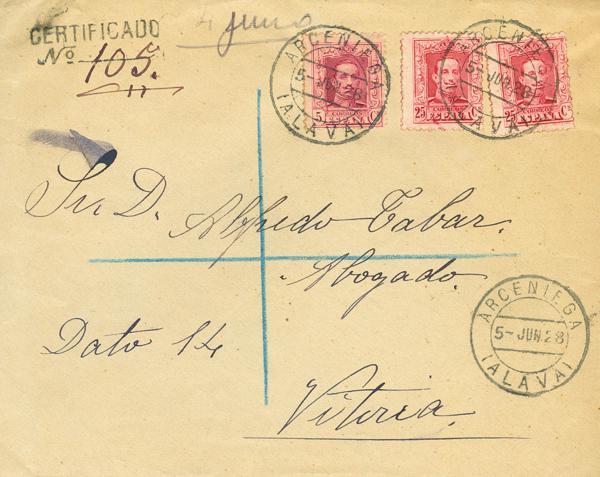 CERTIFICADO
Nº 105.
4 junio
ARCENIEGA
5-JUN.28
(ALAVA)
25 ESPAÑA Cs
ARCENIEGA
5-JUN.28
(ALAVA)
25 ESPAÑA Cs
Sr. D. Alfredo Tabar.
Abogado.
Dato 14
Vitoria.
ARCENIEGA
5-JUN.28
(ALAVA)